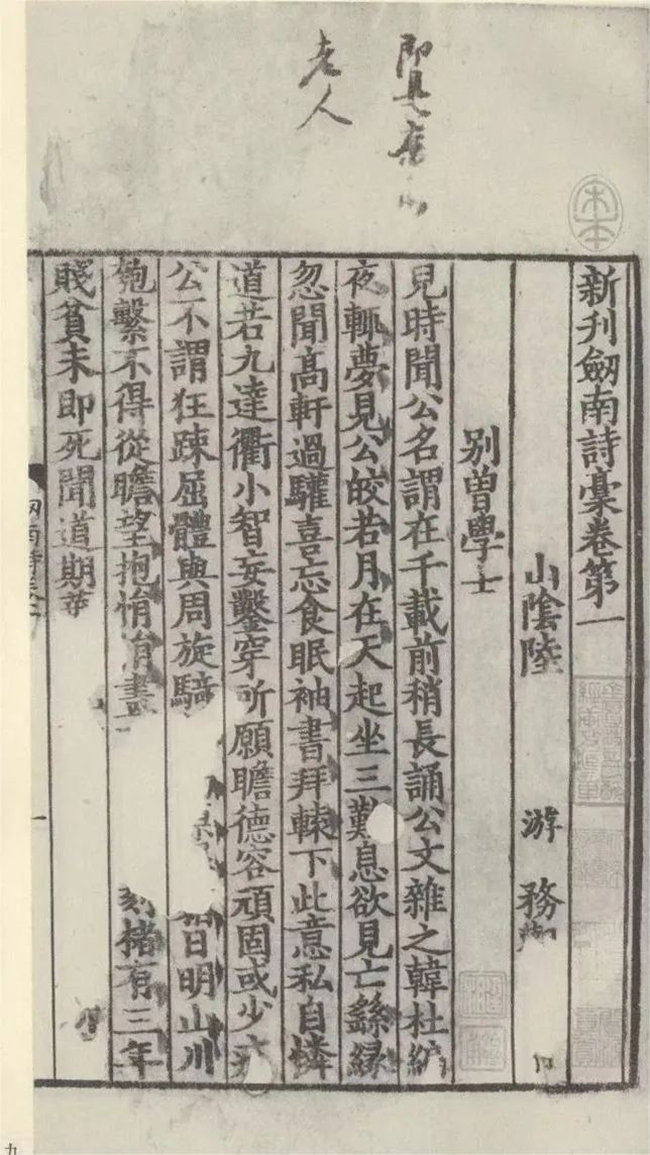 老人
新刋劒南詩稾卷第一
山隂陸 游 務
别曾學士
兒時聞公名謂在千載前稍長誦公文雜之韓杜編
夜輙夢見公皎若月在天起坐三歎息欲見亡繇縁
忽聞髙軒過驩喜忘食眠袖書拜轅下此意私自憐
道若九逵衢小智妄鑿穿所願瞻德容頑固或少痊
公不謂狂踈屈體與周旋騎 日明山川
匏繫不得從瞻望抱悁悁畫 刻楮有三年
賤貧未即死聞道期
一
九